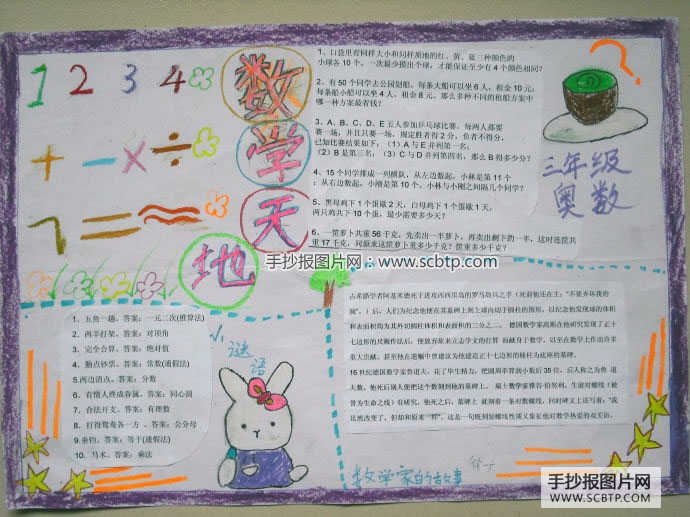 1 2 3 4
+ - × ÷
7 = ≈
数学天地
1、口袋里有同样大小和同样质地的红、黄、蓝三种颜色的
小球各10个，一次最少摸出个球，才能保证至少有4个颜色相同？
2、有50个同学去公园划船，每条大船可以坐6人，租金10元；
每条船小船可以坐4人，租金8元，那么多种不同的租船方案中
哪一种方案最省钱？
3、A、B、C、D、E五人参加乒乓球比赛，每两人都要
赛一场，并且只赛一场，规定胜者得2分，负者不得分，
已知比赛结果如下：（1）A与E并列第一名；
（2）B是第三名；（3）C与D并列第四名，那么B得多少分？
4、15个同学排成一列横队，从左边数起，小林是第11个
；从右边数起，小刚是第10个。小林与小刚之间隔几个同学？
5、黑母鸡下1个蛋歇2天，白母鸡下1个蛋歇1天，
两只鸡共下10个蛋，最少需要多少天？
6、一筐萝卜共重56千克，先卖出一半萝卜，再卖出剩下的一半，这时连筐共
重17千克，问原来这筐萝卜重多少千克？筐重多少千克？
?
三年级
奥数
手抄报图片网--www.scbtp.com
1、五角一趟，答案：一元二次(推算法)
2、两羊打架，答案：对顶角
3、完全合算，答案：绝对值
4、勤点钞票，答案：常数(通假法)
5、两边清点，答案：分数
6、有情人终成眷属，答案：同心圆
7、合法开支，答案：有理数
8、打得鸳鸯各一方，答案：公分母
9、垂钓，答案：等于(通假法)
10、马术，答案：乘法
小谜语
古希腊学者阿基米德死于进攻西西里岛的罗马敌兵之手（死前他还在主：“不要弄坏我的
圆”。）后，人们为纪念他便在其墓碑上刻上球内切于圆柱的图形，以纪念他发现球的体积
和表面积均为其外切圆柱体积和表面积的三分之二。 德国数学家高斯在他研究发现了正十
七边形的尺规作法后，便放弃原来立志学文的打算 而献身于数学，以至在数学上作出许多
重大贡献。甚至他在遗嘱中曾建议为他建造正十七边形的棱柱为底座的墓碑。
16世纪德国数学家鲁道夫，花了毕生精力，把圆周率算到小数后35位，后人称之为鲁 道
夫数，他死后别人便把这个数刻到他的墓碑上。 瑞士数学家雅谷·伯努利，生前对螺线（被
誉为生命之线）有研究，他死之后，墓碑上 就刻着一条对数螺线，同时碑文上还写着：“我
虽然改变了，但却和原来一样”。这是一句既刻划螺线性质又象征他对数学热爱的双关语。
数学家的故事
手抄报图片网
WWW.SCBTP.COM